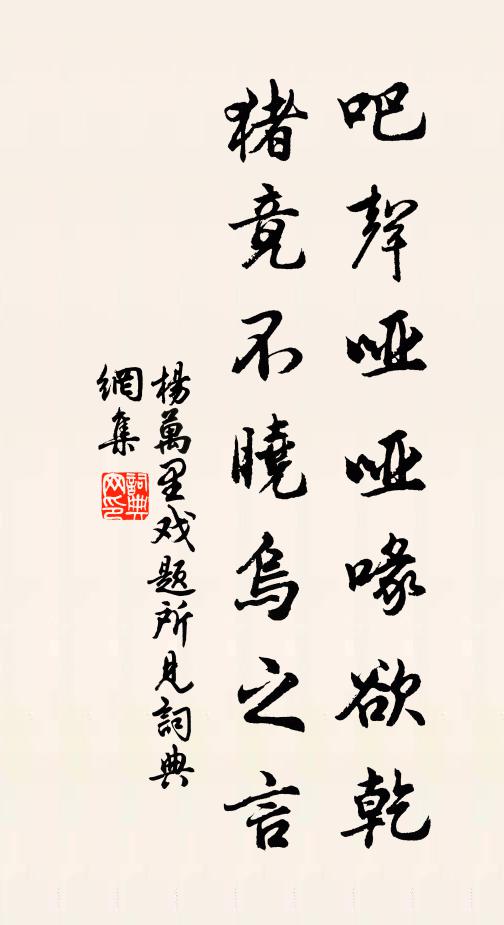 吧聲哑哑喙欲乾
猪竟不曉烏之言
楊萬里戏题所見詞典
網集
詞典
网印